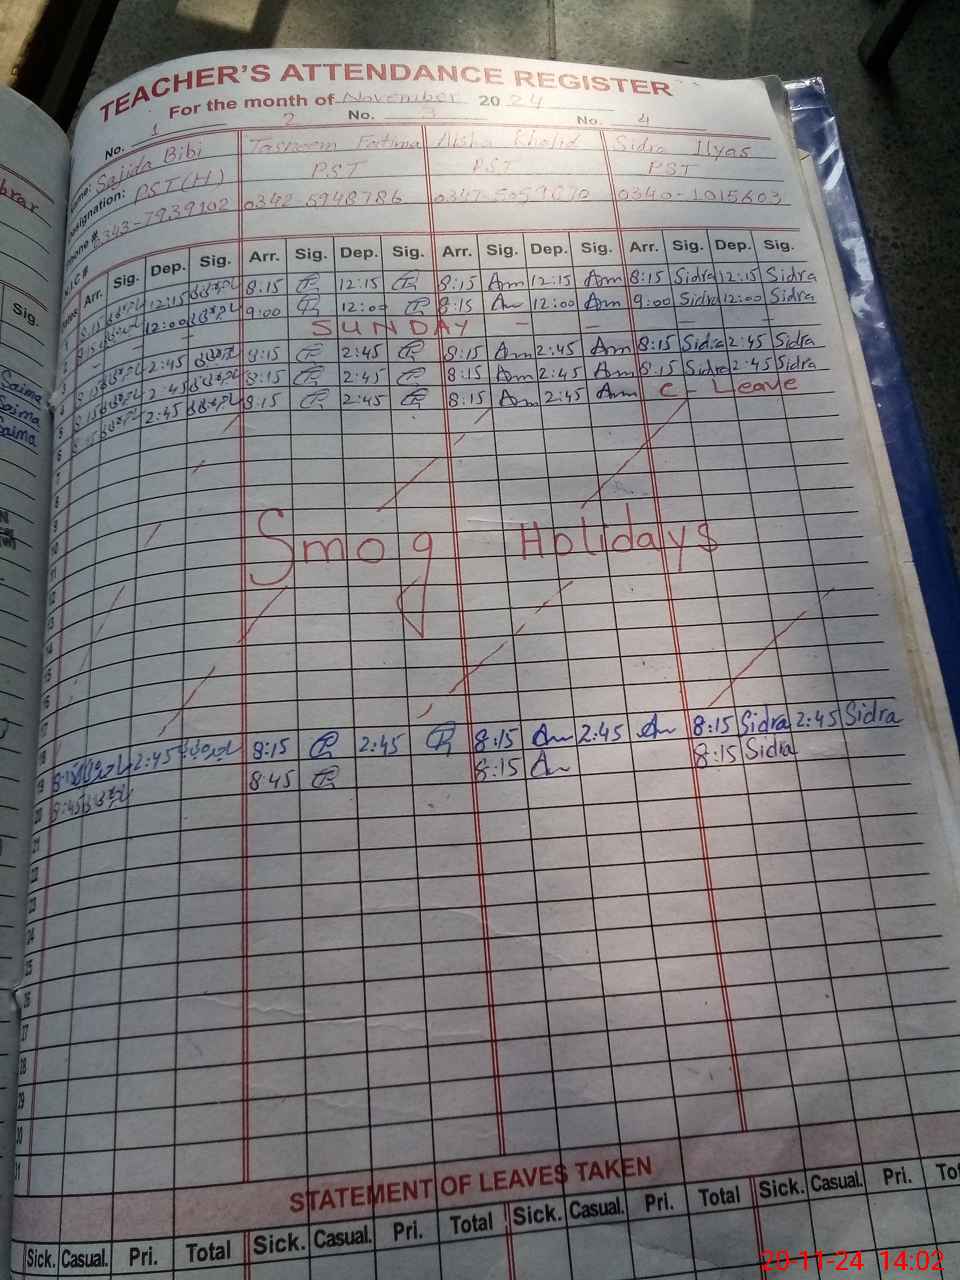 TEACHER'S ATTENDANCE REGISTER
For the month of November 2024
No. 1 2 No. 3 No. 4
Name: Sajida Bibi Tasneem Fatima Aisha Khalid Sidra Ilyas
Designation: PST(H) PST PST PST
Phone # 0343-7939102 0342-6948786 0340-1015603
N.I.C #
Arr. Sig. Dep. Sig. Arr. Sig. Dep. Sig. Arr. Sig. Dep. Sig. Arr. Sig. Dep. Sig.
1 8:15 12:15 8:15 12:15 8:15 Am 12:15 Am 8:15 Sidra 12:15 Sidra
2 8:15 12:00 9:00 12:00 8:15 Am 12:00 Am 9:00 Sidra 12:00 Sidra
3 - - SUNDAY - - - -
4 8:15 2:45 8:15 2:45 8:15 Am 2:45 Am 8:15 Sidra 2:45 Sidra
5 8:15 2:45 8:15 2:45 8:15 Am 2:45 Am 8:15 Sidra 2:45 Sidra
6 8:15 2:45 8:15 2:45 8:15 Am 2:45 Am C - Leave
7
8
9
10
Smog Holidays
11
12
13
14
15
16
17
18
19 8:15 2:45 8:15 2:45 8:15 Am 2:45 Am 8:15 Sidra 2:45 Sidra
20 8:45 8:45 8:15 Am 8:15 Sidra
21
22
23
24
25
26
27
28
29
30
31
STATEMENT OF LEAVES TAKEN
Sick. Casual. Pri. Total Sick. Casual. Pri. Total Sick. Casual. Pri. Total Sick. Casual. Pri.
Sig.
Saima
Saima
Saima
20-11-24 14:02